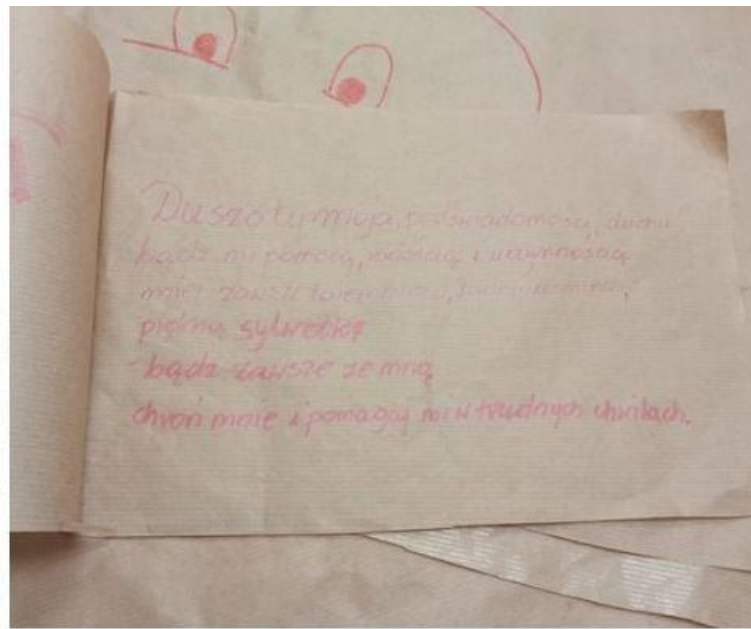 Duszo ty moja, podświadomości, duchu
bądź mi pomocą, radością i uczynnością
miej zawsze ładny uśmiech,
piękną sylwetkę
bądz zawsze ze mną
chroń mnie i pomagaj mi w trudnych chwilach.